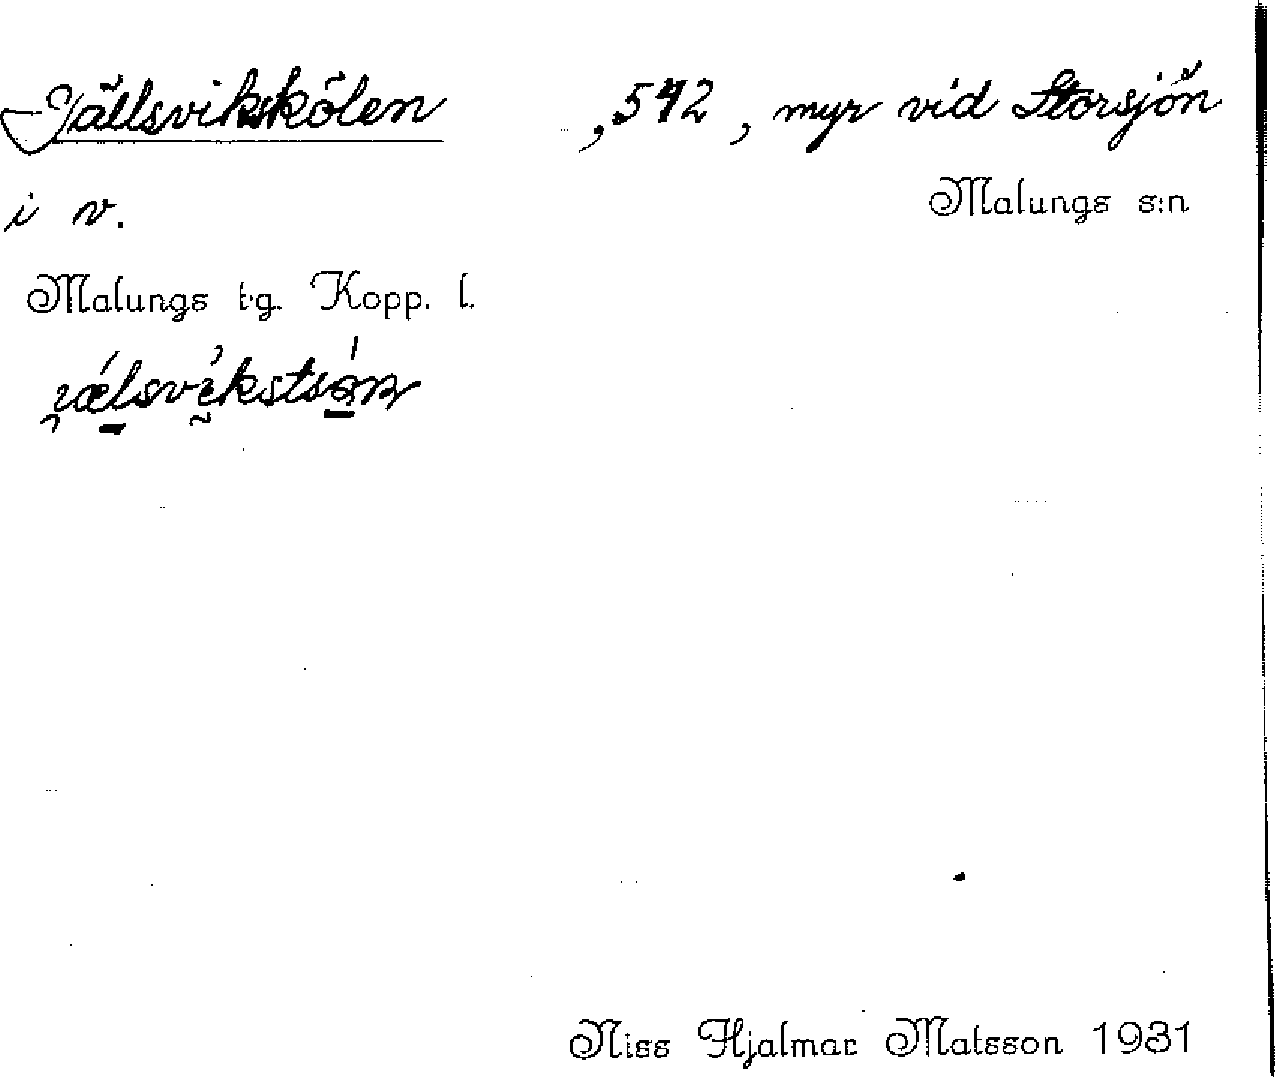 Jällsvikskölen , 542 , myr vid Storsjön
i v. Malungs s:n
Malungs tg. Kopp. l.
Niss Hjalmar Matsson 1931